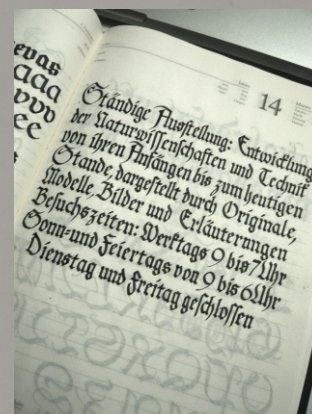 evas
aaa
vvv
ee
14
Ständige Ausstellung: Entwicklung
der Naturwissenschaften und Technik
von ihren Anfängen bis zum heutigen
Stande, dargestellt durch Originale,
Modelle, Bilder und Erläuterungen
Besuchszeiten: Werktags 9 bis 7 Uhr
Sonn- und Feiertags von 9 bis 6 Uhr
Dienstag und Freitag geschlossen